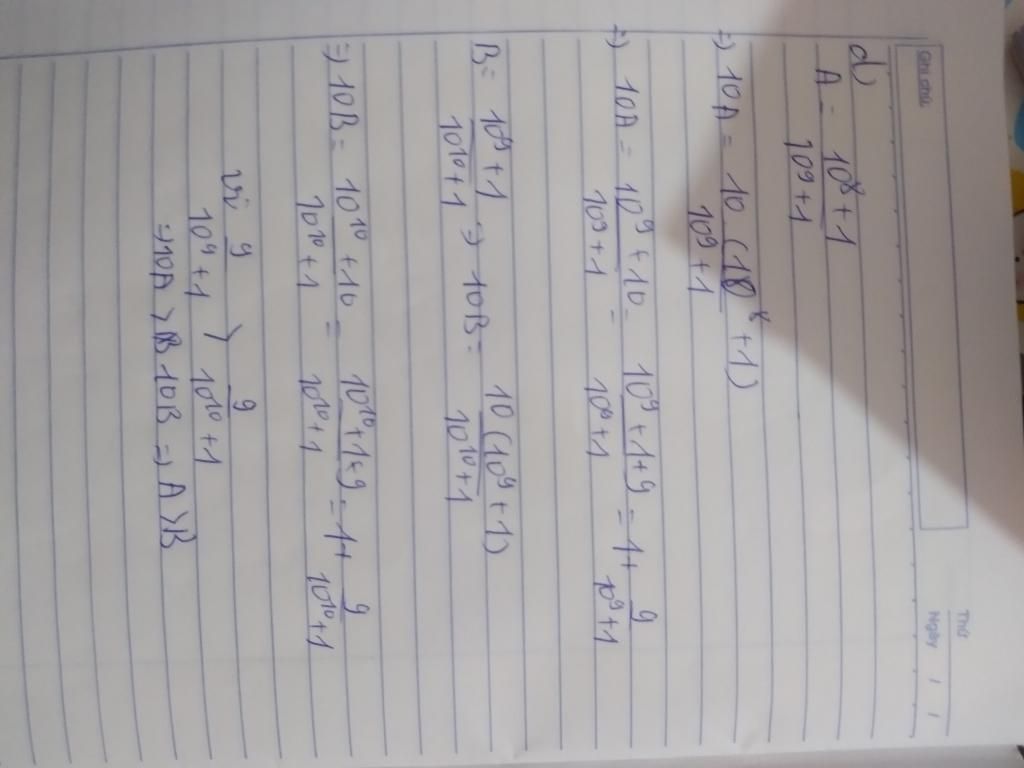 Ghi chú
Thứ
Ngày / /
d)
A = \frac{10^8 + 1}{10^9 + 1}
=) 10A = \frac{10 (10^8 + 1)}{10^9 + 1}
=) 10A = \frac{10^9 + 10}{10^9 + 1} = \frac{10^9 + 1 + 9}{10^9 + 1} = 1 + \frac{9}{10^9 + 1}
B = \frac{10^9 + 1}{10^{10} + 1} =) 10B = \frac{10 (10^9 + 1)}{10^{10} + 1}
=) 10B = \frac{10^{10} + 10}{10^{10} + 1} = \frac{10^{10} + 1 + 9}{10^{10} + 1} = 1 + \frac{9}{10^{10} + 1}
Vì \frac{9}{10^9 + 1} > \frac{9}{10^{10} + 1}
=) 10A > 10B =) A > B